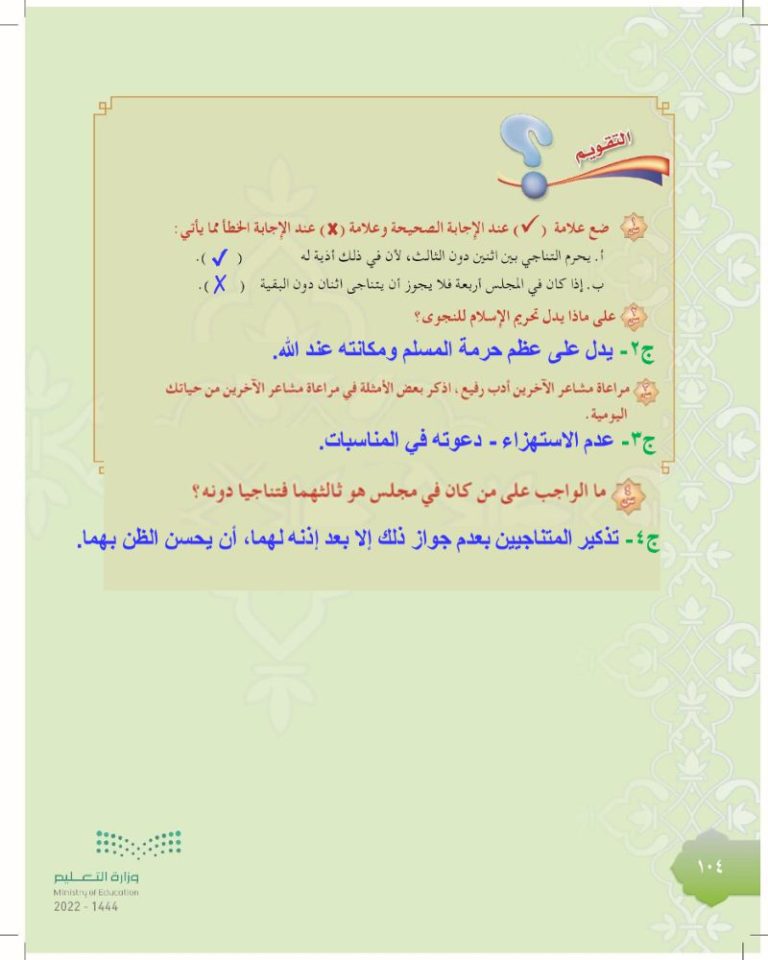 التقويم
س١ ضع علامة (✓) عند الإجابة الصحيحة وعلامة (✗) عند الإجابة الخطأ مما يأتي:
أ. يحرم التناجي بين اثنين دون الثالث، لأن في ذلك أذية له ( ✓ ).
ب. إذا كان في المجلس أربعة فلا يجوز أن يتناجى اثنان دون البقية ( ✗ ).
س٢ على ماذا يدل تحريم الإسلام للنجوى؟
ج٢- يدل على عظم حرمة المسلم ومكانته عند الله.
س٣ مراعاة مشاعر الآخرين أدب رفيع، اذكر بعض الأمثلة في مراعاة مشاعر الآخرين من حياتك
اليومية.
ج٣- عدم الاستهزاء - دعوته في المناسبات.
س٤ ما الواجب على من كان في مجلس هو ثالثهما فتناجيا دونه؟
ج٤- تذكير المتناجيين بعدم جواز ذلك إلا بعد إذنه لهما، أن يحسن الظن بهما.
وزارة التعليم
Ministry of Education
2022 - 1444
١٠٤